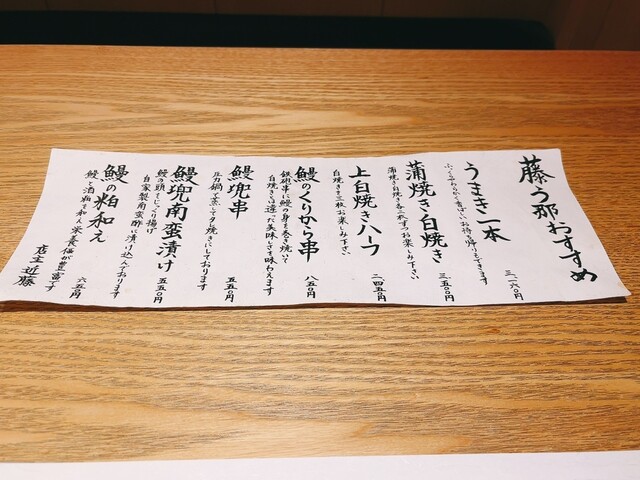 藤う那おすすめ
うまき一本
ふっくらやわらかく香ばしいお持ち帰りもできます
三、一六〇円
蒲焼き・白焼き
蒲焼き白焼き各二枚ずつお楽しみ下さい
三、五〇〇円
上白焼きハーフ
白焼きを三枚お楽しみ下さい
二、四五〇円
鰻のくりから串
鉄砲串に鰻の身を巻き焼いて
白焼きとは違った美味しさを味わえます
八五〇円
鰻兜串
圧力鍋で蒸してタレ焼きにしております
五五〇円
鰻兜南蛮漬け
鰻の頭をじっくり揚げ
自家製南蛮酢に漬け込んでおります
五五〇円
鰻の粕和え
鰻と酒粕を和え栄養価が豊富です
六五〇円
店主 近藤